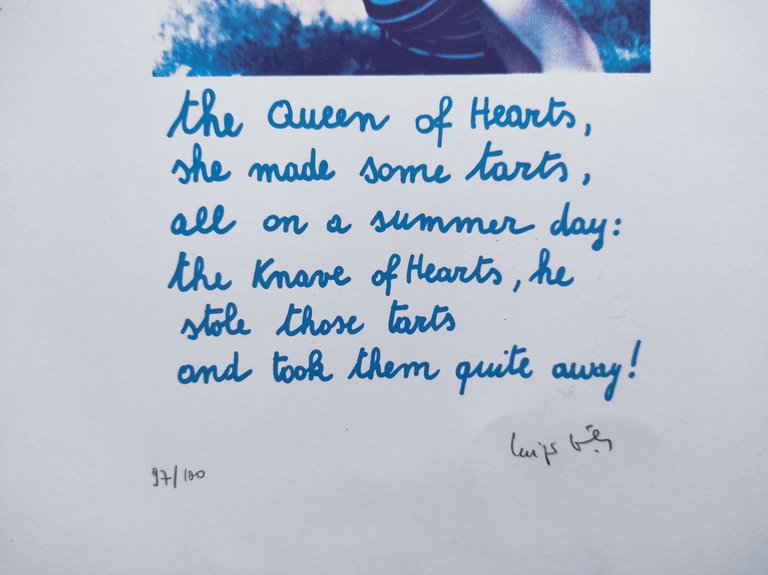 the Queen of Hearts,
she made some tarts,
all on a summer day:
the Knave of Hearts, he
stole those tarts
and took them quite away!
97/100